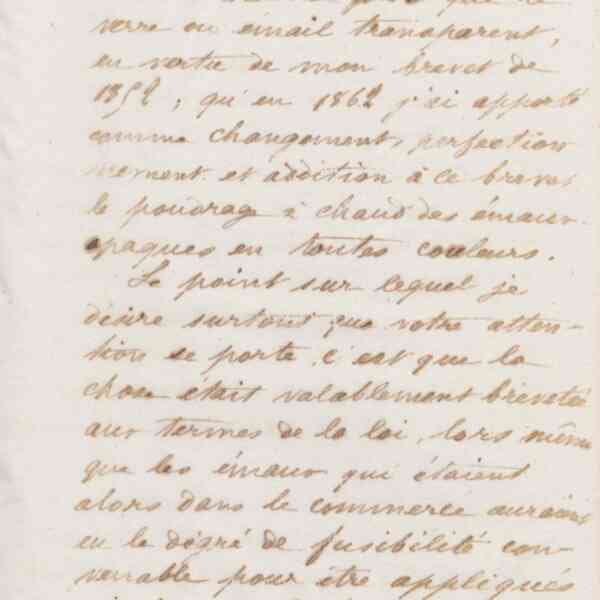 verre ou émail transparent,
en vertu de mon brevet de
1852 ; qu'en 1862 j'ai apporté
comme changement, perfection
nement et addition à ce brevet
le poudrage à chaud des émaux
opaques en toutes couleurs.
Le point sur lequel je
désire surtout que votre atten-
tion se porte c'est que la
chose était valablement brevetée
aux termes de la loi, lors même
que les émaux qui étaient
alors dans le commerce auraient
eu le dégré de fusibilité con-
venable pour être appliqués